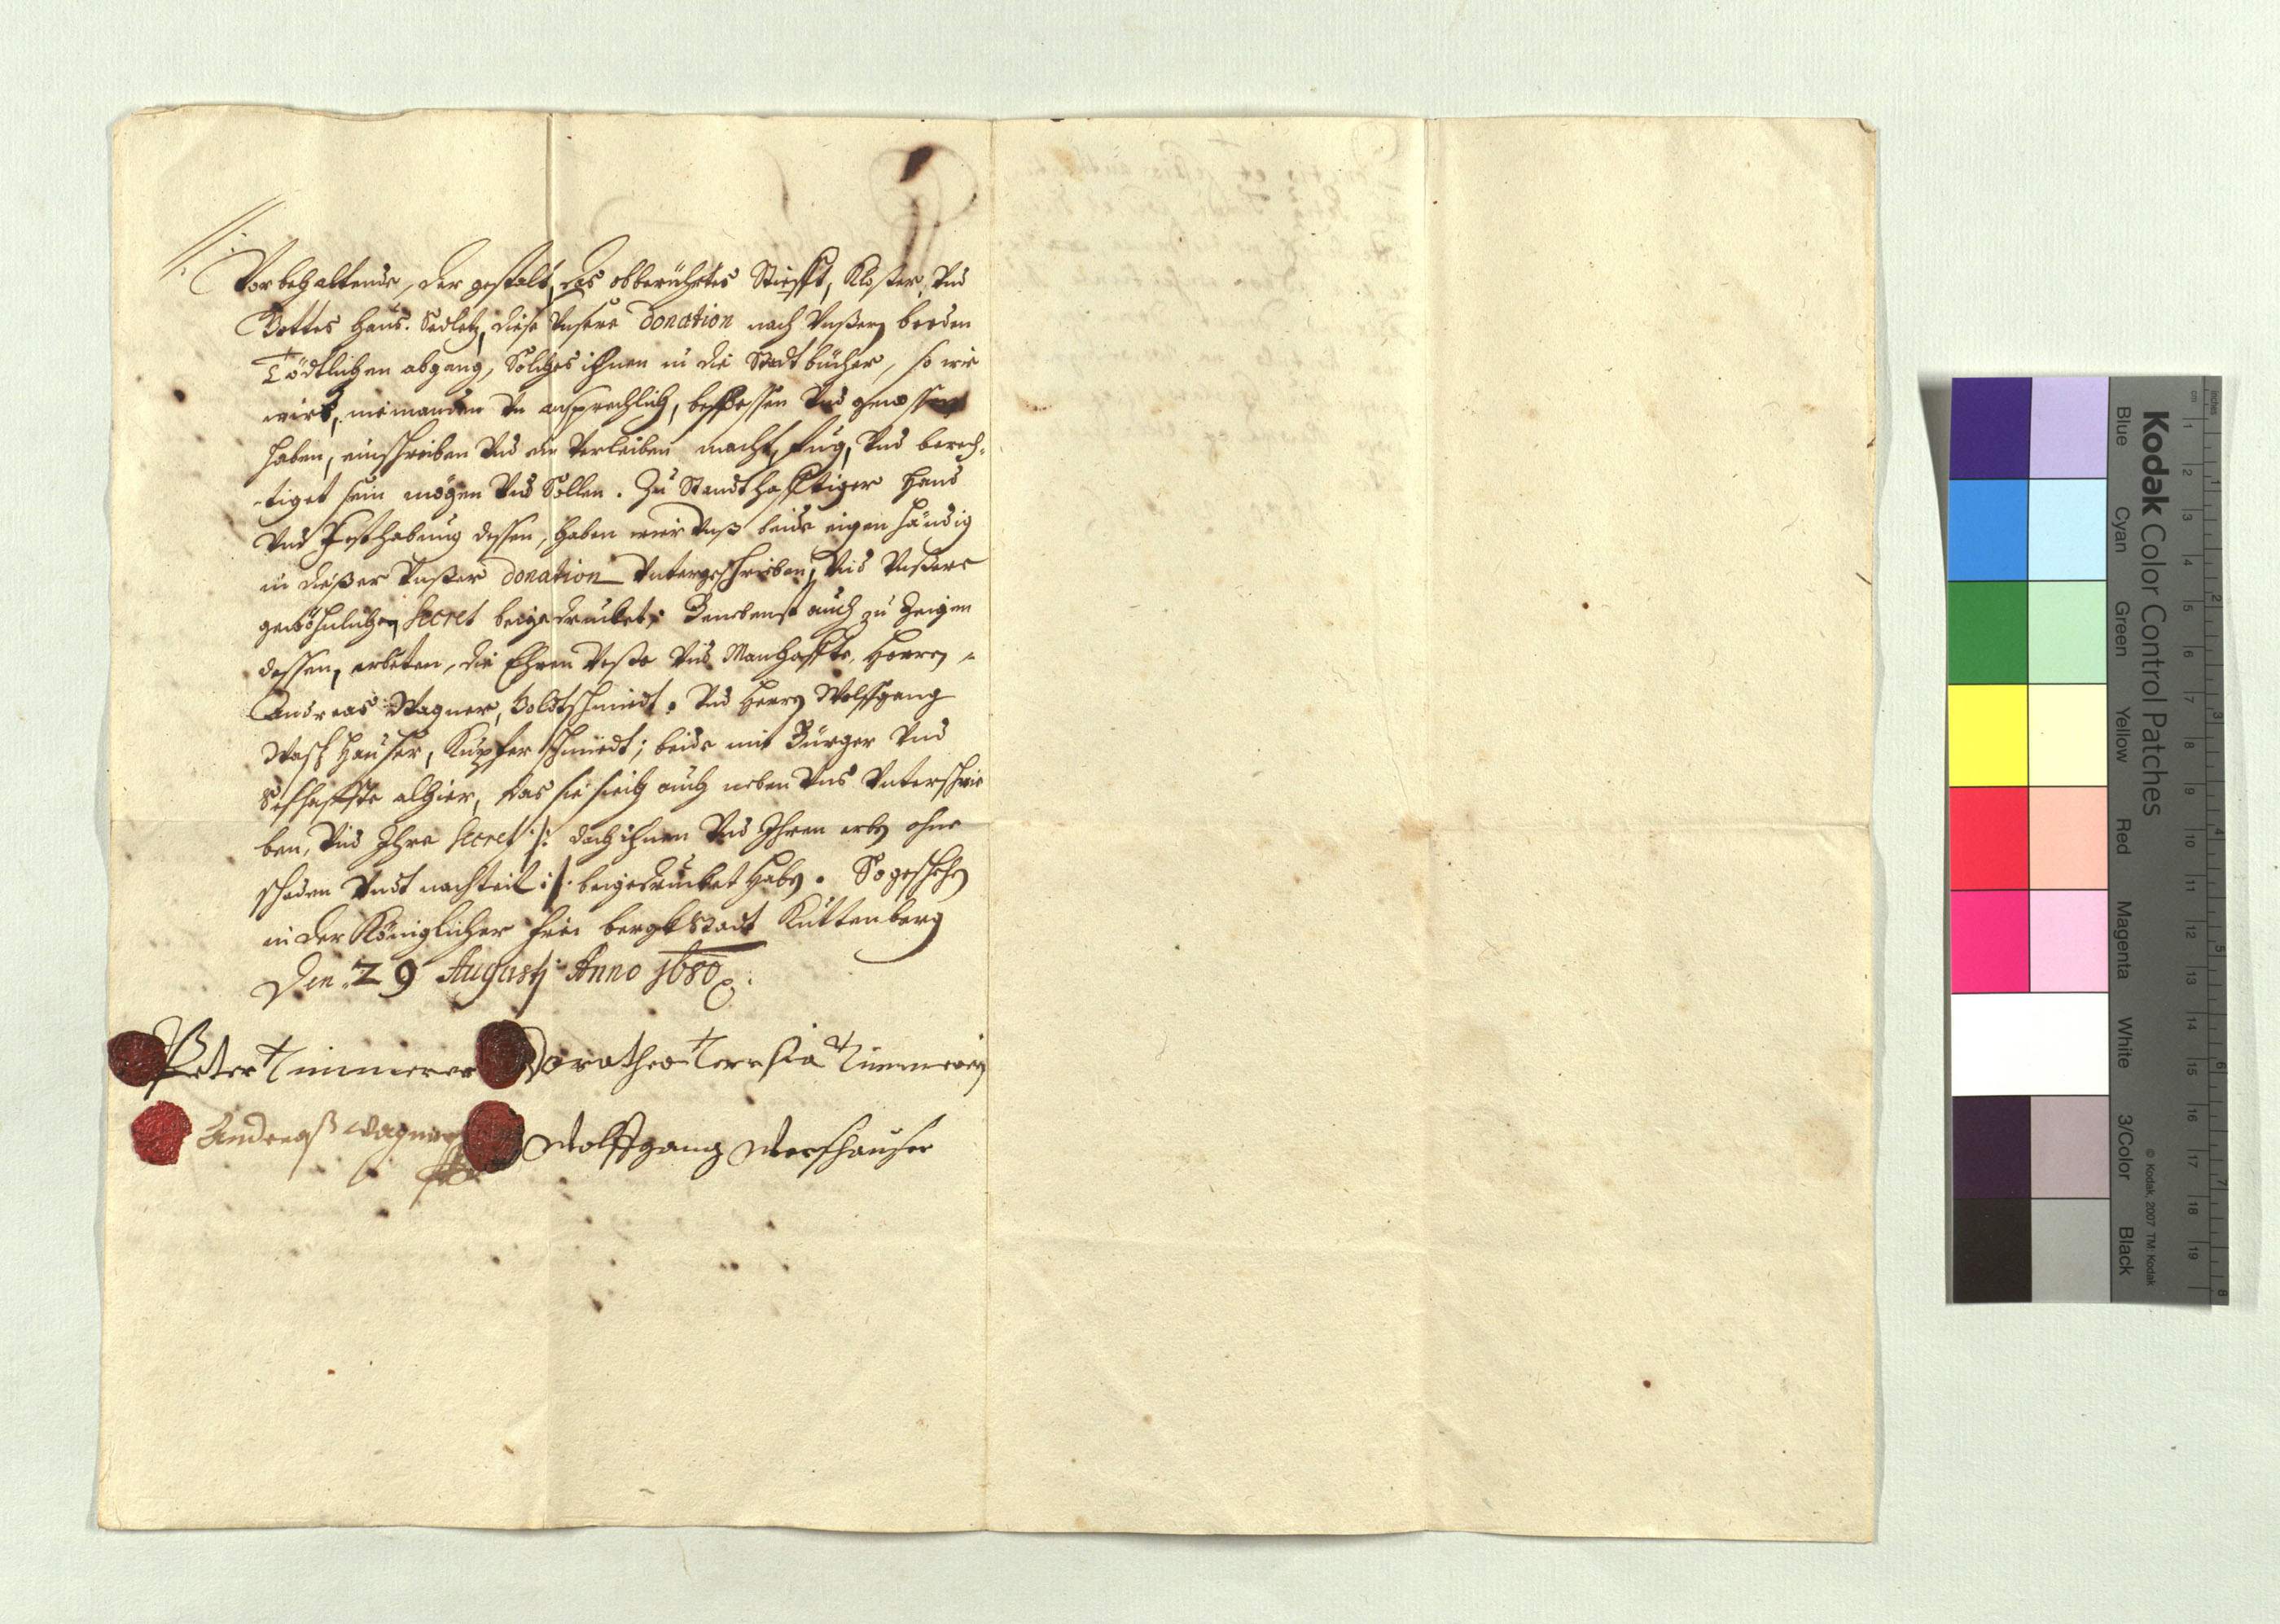 Vorbehaltende, der gestalt, das obberührtes Stiefft, Kloster, Vnd
Gottes Haus. Sedletz, diese Vnsere donation nach Vnßern beeden
Tödtlichen abgang, Solches ihnen in die Stadtbücher, so wie
wirs, niemanden Vn ansprechlich, besessen Vnd genossen
haben, einschreiben Vnd ein Verleiben macht, fug, Vnd berech-
-tiget sein mögen Vnd Sollen. Zu Standthafftiger Hand
Vnd Festhabung dessen, haben wir Vnß beide eigen händig
in dießer Vnßer donation Vntergeschrieben, Vnd Vnßere
gewöhnlichen Secret beigedrucket; Benebenst auch zu Zeigen
dessen, erbeten, die Ehren Veste Vnd Manhaffte, Herren
Andreas Wagner, Goldtschmiedt. Vnd Herrn Wolffgang
Kupferschmiedt; beide mit Bürger Vnd
Seßhaffte alhier, das sie sich auch neben Vns Vnterschrie
ben, Vnd Ihre Secret :/: doch ihnen Vnd Ihren erben ohne
schaden Vndt nachteil :/: beigedrucket haben. So geschehen
in der Königlicher frei bergk Stadt Kuttenberg
Den. 29 Augusti Anno 1680
Peter Timmerer Dorathea Teresia Timmerin
Andreaß Wagner Wolffgang
Kodak Color Control Patches
Blue Cyan Green Yellow Red Magenta White 3/Color Black
© Kodak, 2007 TM: Kodak
inches 1 2 3 4 5 6 7 8
cm 1 2 3 4 5 6 7 8 9 10 11 12 13 14 15 16 17 18 19